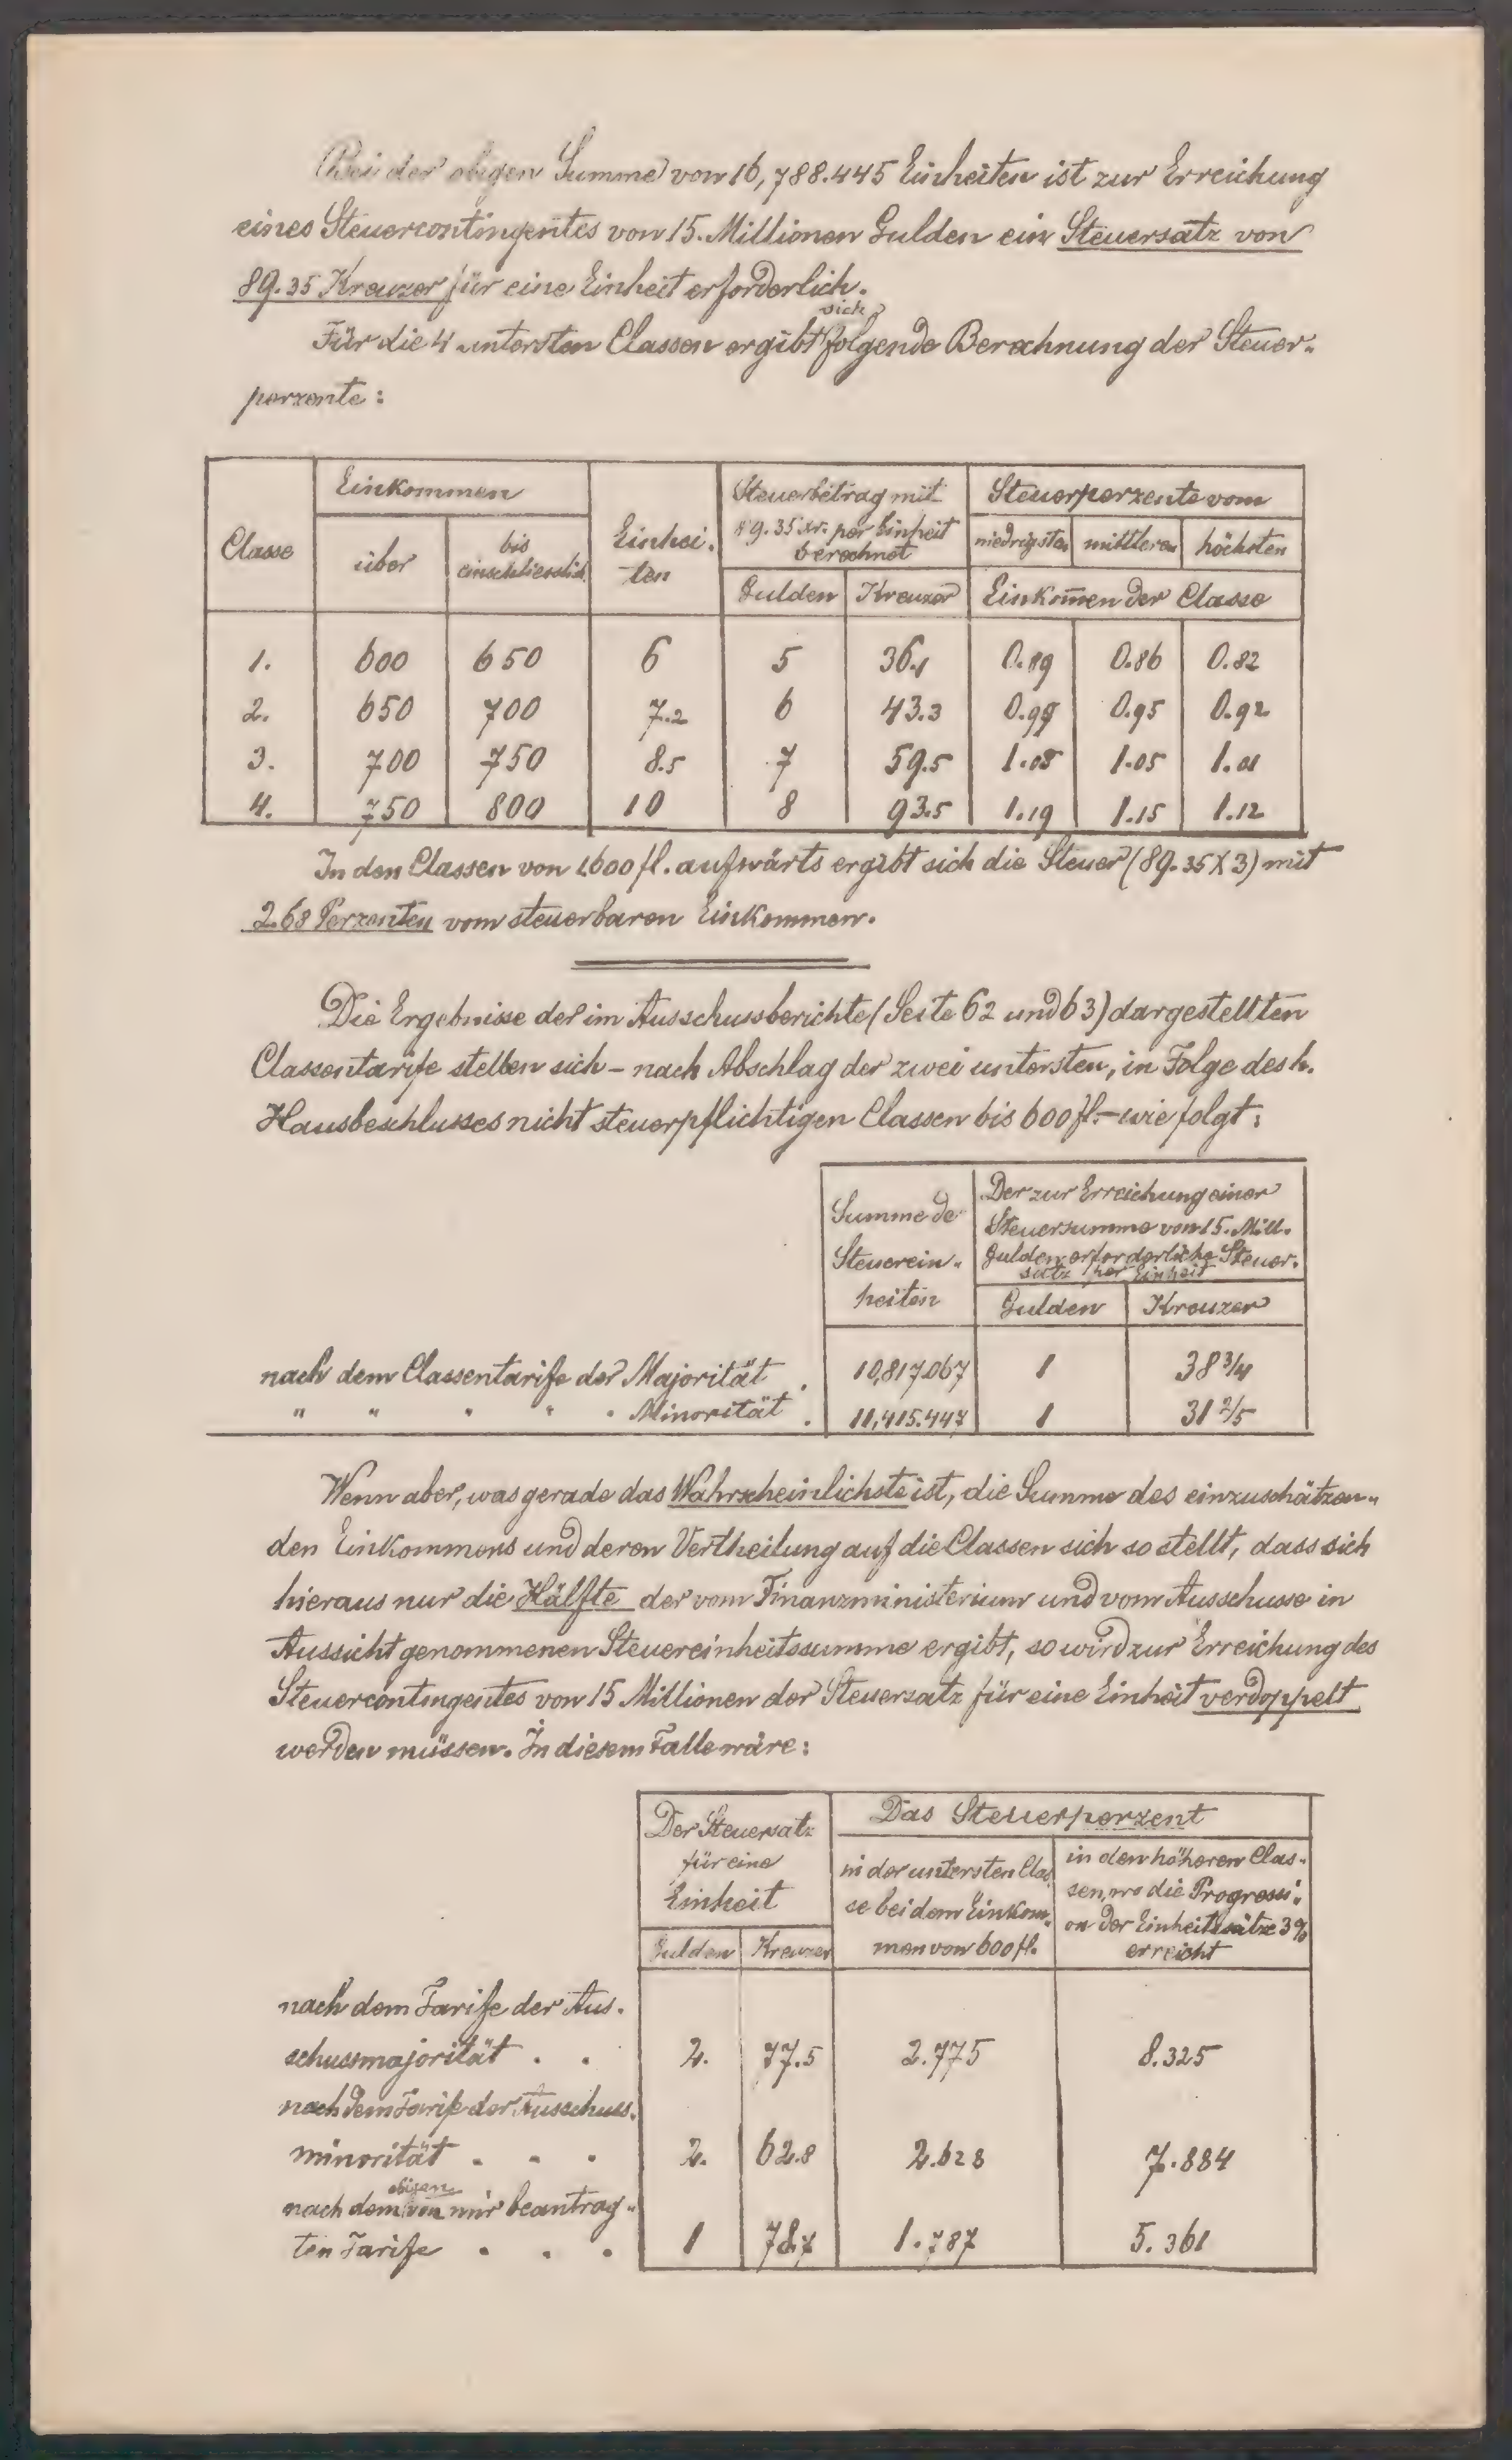 Bei der obigen Summe von 16,788.445 Einheiten ist zur Erreichung
eines Steuercontingentes von 15. Millionen Gulden ein Steuersatz von
89.35 Kreuzer für eine Einheit erforderlich.
Für die 4 untersten Classen ergibt sich folgende Berechnung der Steuer-
perzente:
Classe Einkommen Einhei- Steuerbetrag mit Steuerperzente vom
über bis ten 89.35 xr. per Einheit niedrigsten mittleren höchsten
einschliesslich berechnet
Gulden Kreuzer Einkommen der Classe
1. 600 650 6 5 36.1 0.89 0.86 0.82
2. 650 700 7.2 6 43.3 0.99 0.95 0.92
3. 700 750 8.5 7 59.5 1.08 1.05 1.01
4. 750 800 10 8 93.5 1.19 1.15 1.12
In den Classen von 1600 fl. aufwärts ergibt sich die Steuer (89.35 X 3) mit
2.68 Perzenten vom steuerbaren Einkommen.
Die Ergebnisse der im Ausschussberichte (Seite 62 und 63) dargestellten
Classentarife stellen sich – nach Abschlag der zwei untersten, in Folge des h.
Hausbeschlusses nicht steuerpflichtigen Classen bis 600 fl. – wie folgt:
Summe de
Steuerein-
heiten
Der zur Erreichung einer
Steuersumme von 15. Mill.
Gulden erforderliche Steuer-
satz per Einheit
Gulden Kreuzer
nach dem Classentarife der Majorität . 10,817.067 1 38 3/4
" " " " " Minorität . 11,415.447 1 31 2/5
Wenn aber, was gerade das Wahrscheinlichste ist, die Summe des einzuschätzen-
den Einkommens und deren Vertheilung auf die Classen sich so stellt, dass sich
hieraus nur die Hälfte der vom Finanzministerium und vom Ausschusse in
Aussicht genommenen Steuereinheitssumme ergibt, so wird zur Erreichung des
Steuercontingentes von 15 Millionen der Steuersatz für eine Einheit verdoppelt
werden müssen. In diesem Falle wäre:
Der Steuersatz
für eine
Einheit
Gulden Kreuzer
Das Steuerperzent
in der untersten Clas
se bei dem Einkom-
men von 600 fl.
in den höheren Clas-
sen, wo die Progressi-
on der Einheitssätze 3%
erreicht
nach dem Tarife der Aus-
schussmajorität . . 2. 77.5 2.775 8.325
nach dem Tarife der Ausschuss-
minorität . . . 2. 62.8 2.628 7.884
nach dem obigen von mir beantrag-
ten Tarife . . . 1 78.7 1.787 5.361